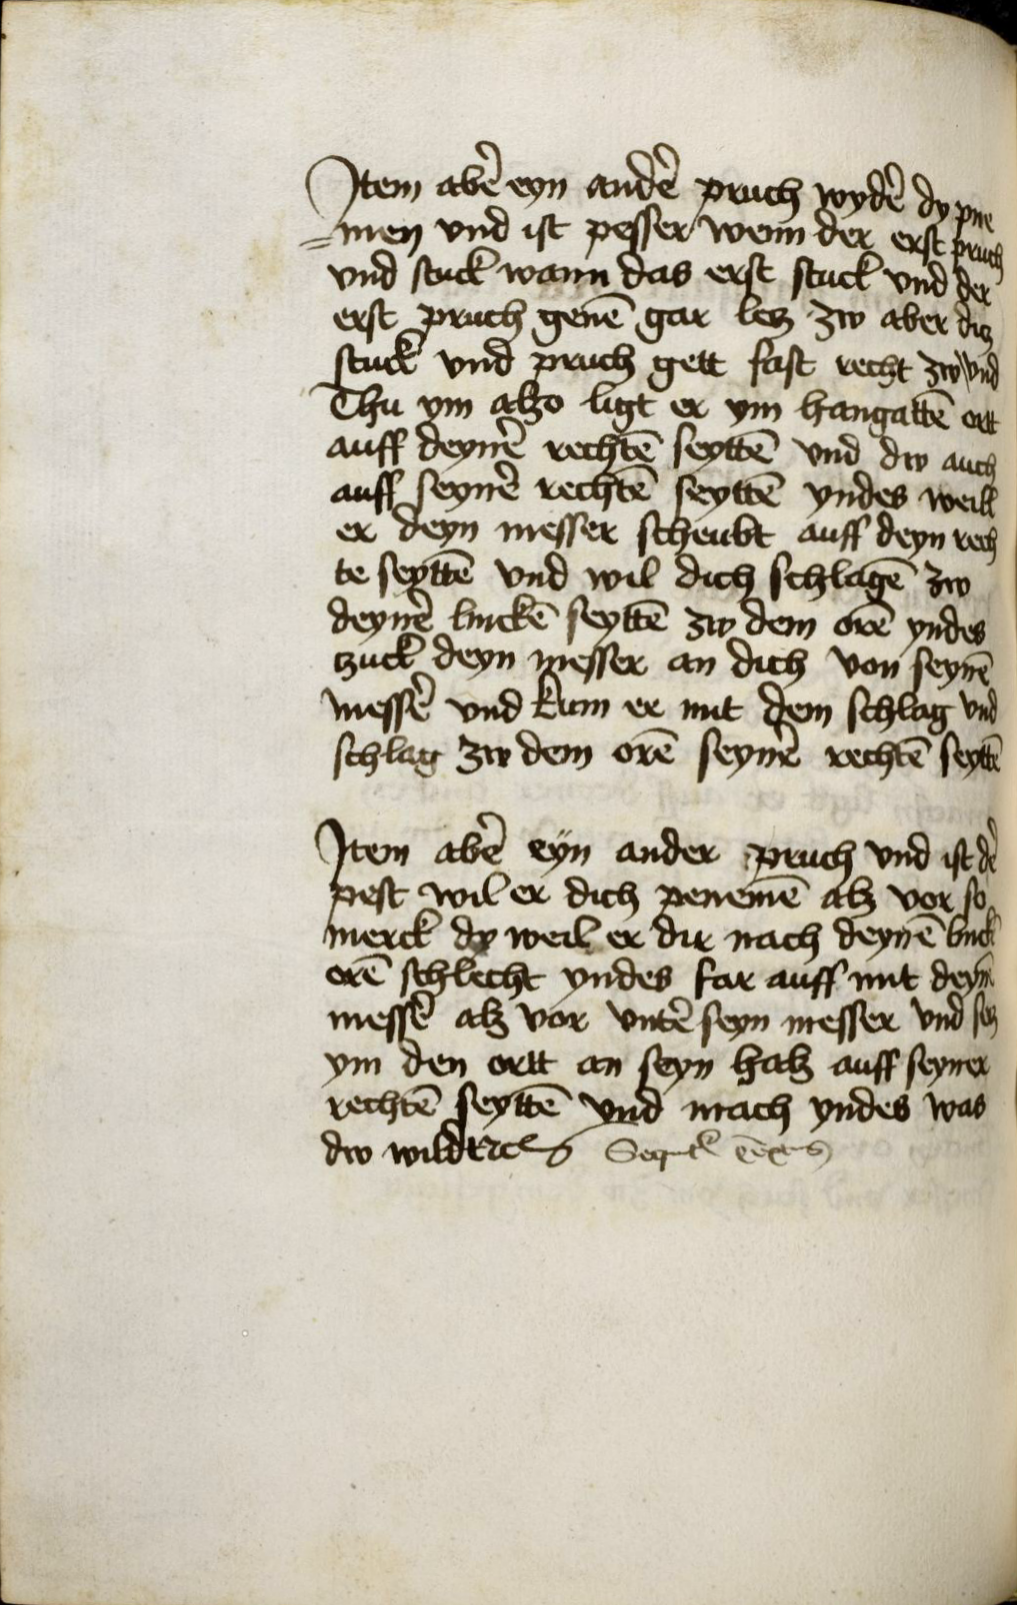 Item abe᷑ eyn ande᷑ pruch wyde᷑ dy pne
=men vnd ist pesser wenn der erst pruch
vnd stuck wann das erst stuck vnd der
erst pruch genē gar letz zw aber ditz
stuck vnd pruch gett fast recht zw vnd
Thu ym alzo ligt er ym hangattē ortt
auff deyne᷑ rechtē seyttē vnd dw auch
auff seyne᷑ rechtē seyttē yndes weill
er deyn messer scheubt auff deyn rech
te seyttē vnd wil dich schlagē zw
deyne᷑ linckē seyttē zw dem orē yndes
tzuck deyn messer an dich von seynē
messe᷑ vnd kum er mit dem schlag vnd
schlag zw dem orē seyne᷑ rechtē seyttē
Item abe᷑ eÿn ander pruch vnd ist de᷑
pest wil er dich penemē alz vor so
merck dy weil er dir nach deynē linck
orē schlecht yndes far auff mit deynē
messe᷑ alz vor vnte᷑ seyn messer vnd setz
ym den ortt an seyn halz auff seyner
rechtē seyttē vnd mach yndes was
dw wild